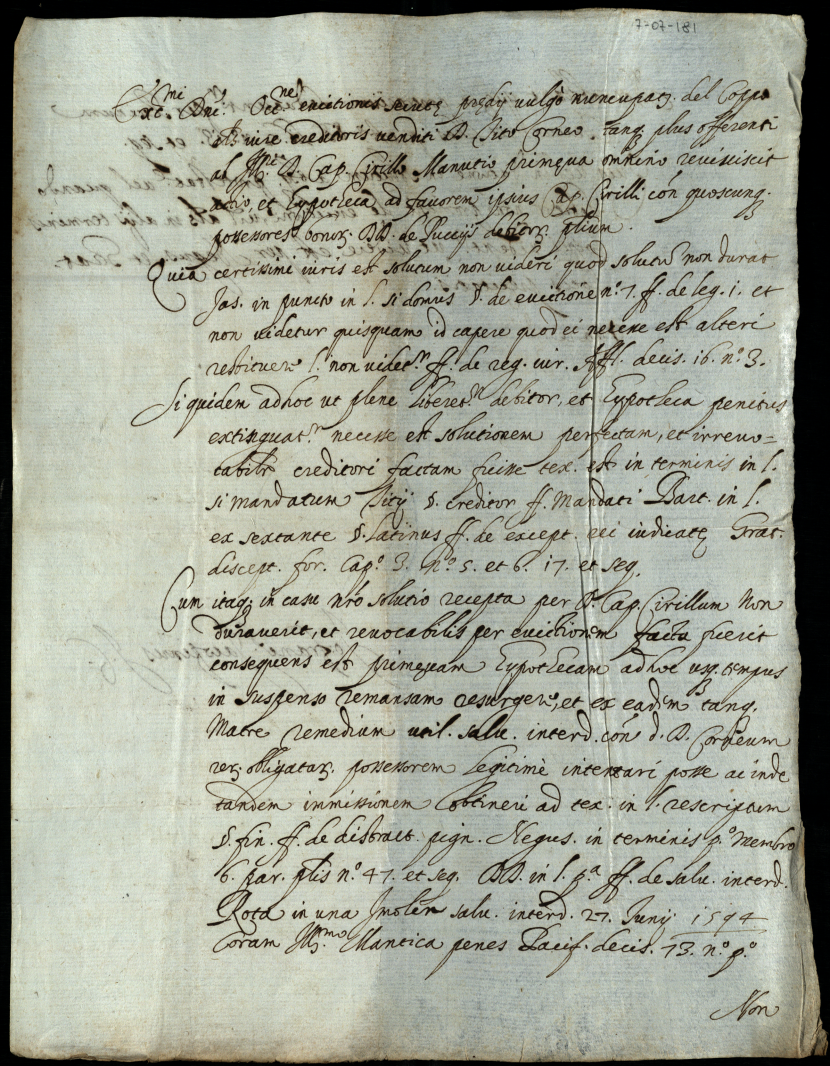 7-07-181
Ex.mi Dni. Occ.ne evictionis secutę prędij vulgò nuncupatꝫ. del Coppa
iure creditoris venditi D. Tito Corneo. tanq. plus offerenti
al Ill. D. Cap. Cirillo Manutio primęva omninò reviviscit
et Eypotheca ad favorem ipsius Cap. Cirilli cón quoscunq.
possessores bonoꝝ. DD. de Puccijs debitoꝝ.
Quia certissimi iuris est solutum non videri quod solutũ non durat
Jas. in puncto in l. si domus §. de evictione nº. 7. ff. de leg. 1. et
non videtur quisquam id capere quod ei necesse est alteri
restituere l. non videt.r ff. de reg. iur. Affl. decis. 16. nº. 3.
Si quidem ad hoc ut plene liberet.r debitor, et Eypotheca penitus
extinguat.r necesse est solutionem perfectam, et irrevo=
cabilẽ creditori factam fuisse tex. est in terminis in l.
si mandatum Titij §. creditor ff. Mandati Bart. in l.
ex sextante §. Latinus ff. de except. rei iudicatę Grat.
discept. for. Cap.º 3. Nº 5. et 6. 17. et seq.
Cum itaq; in casu nrõ solutio recepta per D. Cap. Cirillum Non
duraverit, et revocabilis per evictionem facta fuerit
consequens est primęvam Eypothecam ad hoc usq. tempus
in suspenso remansam resurgere, et ex eadem tanq.
Matre remedium util. salv. interd. cón d. D. Corneum
reꝝ. obligataꝝ. possessorem legitimè intentari posse ac inde
tandem immissionem obtineri ad tex. in l. rescriptum
§. fin. ff. de distract. pign. Negus. in terminis p.º Membro
6. par. plis nº. 47. et seq. DD. in l. p.a ff. de salv. interd.
Rota in una Imolen salv. interd. 27. Junij 1594
Coram Ill.mo Mantica penes Pacif. decis. 73. nº. p.º
Non